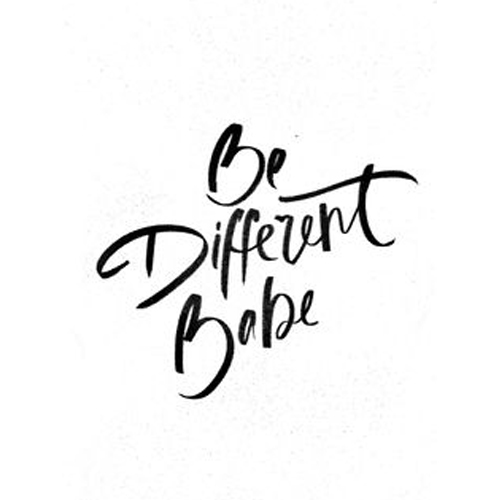 Be
Different
Babe